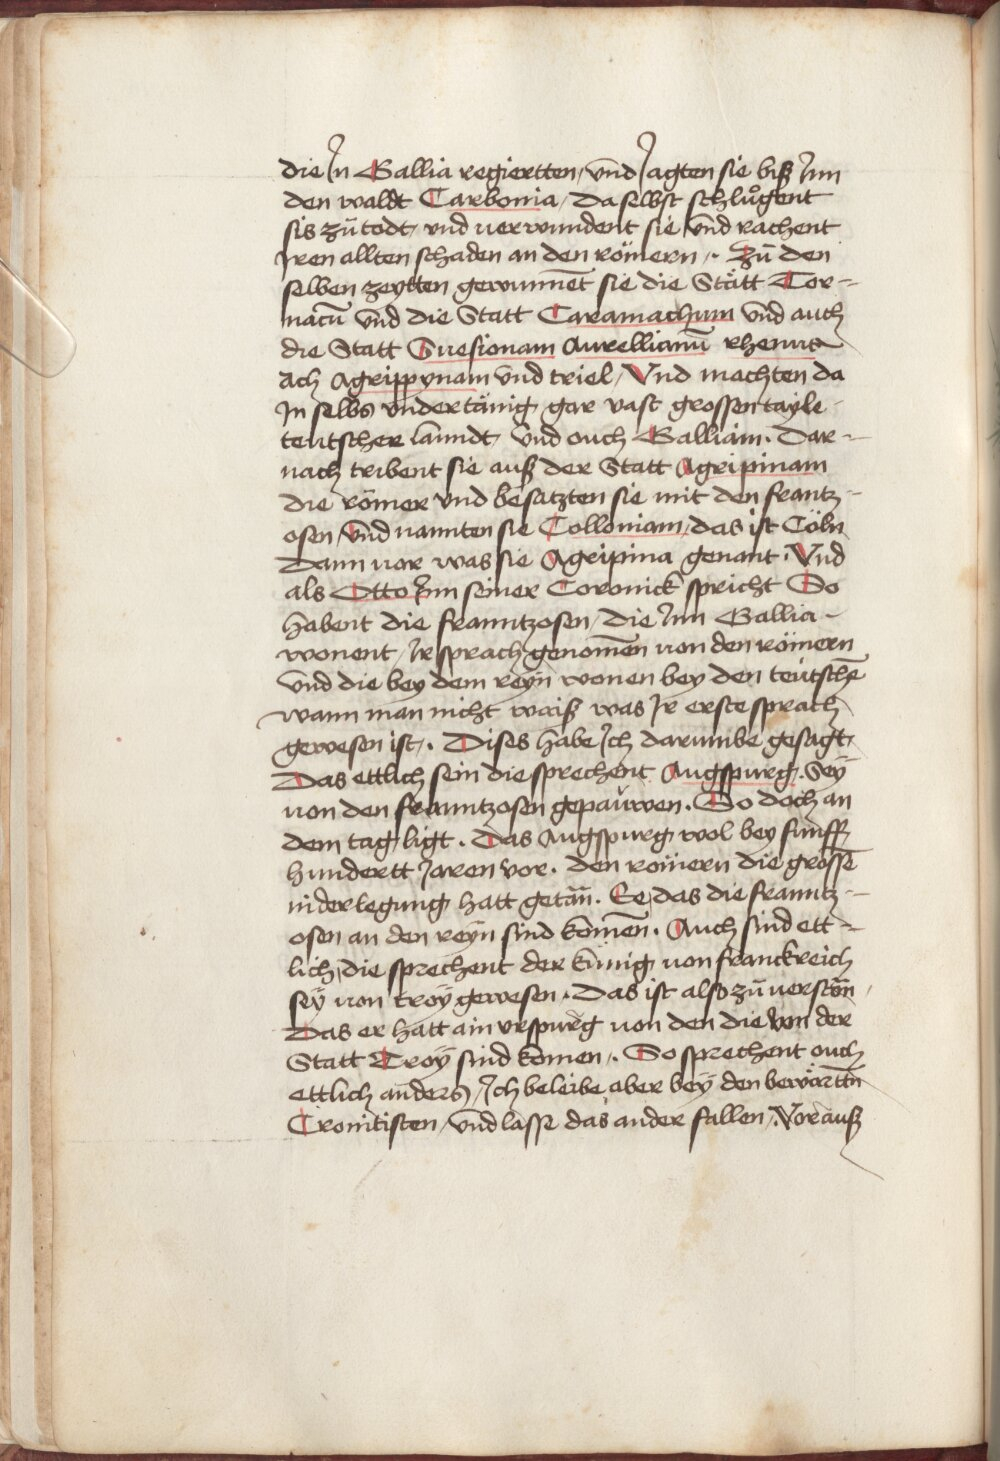 die Jn Gallia regiertten / vnd Jagten sie biß Jnn
den waldt Carbonia / Daselbst schlůgent
sis zů todt / vnd verwundent sie / vnd rachent
Jren allten schaden an den römern /. Zů den
selben zeytten gewunnēt sie die Stätt Tor-
nacū vnd die Statt Caramachum vnd auch
die Statt Suesionam Aurellianū rhenns
Ach Agrippynam vnd triel / Vnd machten da
Jn selbs vndertänig gar vast grossen tayle
teutscher lanndt vnd ouch Galliam. Dar-
nach tribent sie auß der Statt Agripinam
die römer vnd besatzten sie mit den frantz-
osen / vnd nannten sie Colloniam / das ist Cöln
Dann vor was sie Agripina genant. Vnd
als Otto Jnn seiner Coronick spricht So
habent die franntzosen / die Jnn Gallia -
wonent / Jr sprach genomēn von den römern
vnd die bey dem reyn wonen bey den teutschē
wann man nicht waiß was Jr erste sprach
gewesen ist /. Dises habe Jch darumbe gesagt
Das ettlich sein die sprechent Augspurg. Sey
von den franntzosen gepauwen. So doch an
dem tag ligt. Das Augspurg wol bey funff
hundertt Jaren vor. den römern die grossē
niderlegung hatt getān. Ee das die franntz-
osen an den reyn sind komēn. Auch sind ett-
lich, die sprechent der künig von franckreich
sey von troy gewesen. Das ist also zů verstōn
Das er hatt ain vrspurg von den die von der
Statt Troy sind komen /. So sprechent ouch
ettlich anders / Jch beleibe aber bey den bewärttn
Cronitisten / vnd lasse das ander fallen /. Vorauß